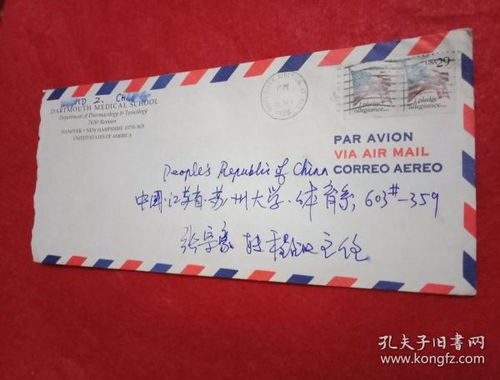 DARTMOUTH MEDICAL SCHOOL
Department of Pharmacology & Toxicology
7650 Remsen
HANOVER • NEW HAMPSHIRE
UNITED STATES OF AMERICA
PM
USA 29
I pledge allegiance...
I pledge allegiance...
PAR AVION
VIA AIR MAIL
CORREO AEREO
People's Republic of China
中国·江苏省·苏州大学·体育系, 603#-359
张宗豪 转 主任
孔夫子旧书网
www.kongfz.com